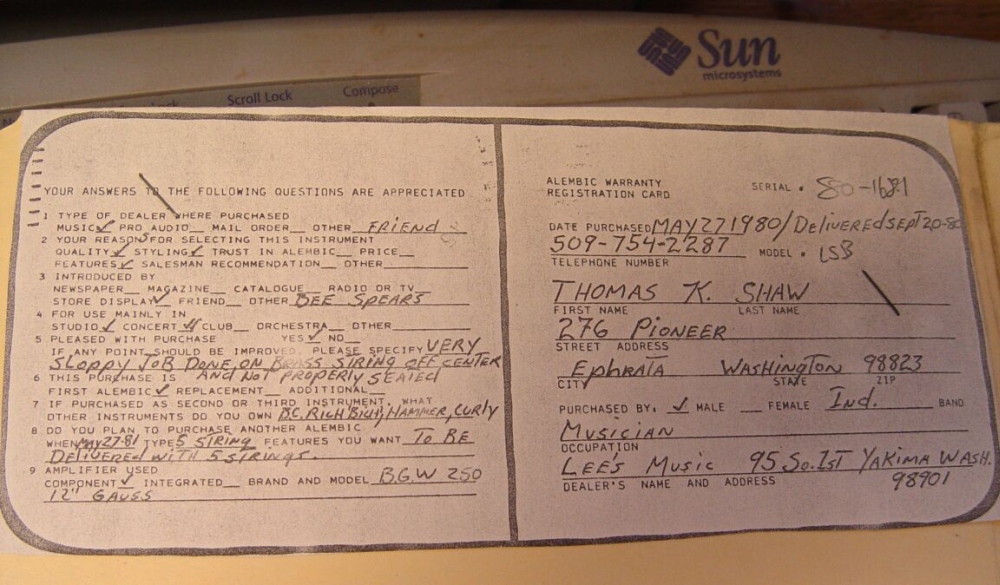 Sun
microsystems
Scroll Lock
Compose
YOUR ANSWERS TO THE FOLLOWING QUESTIONS ARE APPRECIATED
1 TYPE OF DEALER WHERE PURCHASED
MUSIC✓ PRO AUDIO__ MAIL ORDER__ OTHER FRIEND
2 YOUR REASONS FOR SELECTING THIS INSTRUMENT
QUALITY✓ STYLING✓ TRUST IN ALEMBIC__ PRICE__
FEATURES✓ SALESMAN RECOMMENDATION__ OTHER____
3 INTRODUCED BY
NEWSPAPER__ MAGAZINE__ CATALOGUE__ RADIO OR TV__
STORE DISPLAY✓ FRIEND__ OTHER BEE SPEARS
4 FOR USE MAINLY IN
STUDIO✓ CONCERT✓ CLUB__ ORCHESTRA__ OTHER____
5 PLEASED WITH PURCHASE YES✓ NO__
IF ANY POINT SHOULD BE IMPROVED, PLEASE SPECIFY VERY
SLOPPY JOB DONE ON BRASS STRING OFF CENTER
AND NOT PROPERLY SEATED
6 THIS PURCHASE IS
FIRST ALEMBIC✓ REPLACEMENT__ ADDITIONAL__
7 IF PURCHASED AS SECOND OR THIRD INSTRUMENT, WHAT
OTHER INSTRUMENTS DO YOU OWN B.C. RICH BICH, HAMMER, CURLY
8 DO YOU PLAN TO PURCHASE ANOTHER ALEMBIC
WHEN MAY 27-81 TYPE 5 STRING FEATURES YOU WANT TO BE
DELIVERED WITH 5 STRINGS.
9 AMPLIFIER USED
COMPONENT✓ INTEGRATED__ BRAND AND MODEL B.G.W 250
12" GAUSS
ALEMBIC WARRANTY
REGISTRATION CARD
SERIAL • 80-1681
DATE PURCHASED MAY 27 1980/Delivered SEPT 20-80
509-754-2287 MODEL • LSB
TELEPHONE NUMBER
THOMAS K. SHAW
FIRST NAME LAST NAME
276 PIONEER
STREET ADDRESS
EPHRATA WASHINGTON 98823
CITY STATE ZIP
PURCHASED BY: ✓ MALE __ FEMALE Ind. BAND
MUSICIAN
OCCUPATION
LEE'S MUSIC 95 So. 1ST YAKIMA WASH.
DEALER'S NAME AND ADDRESS 98901